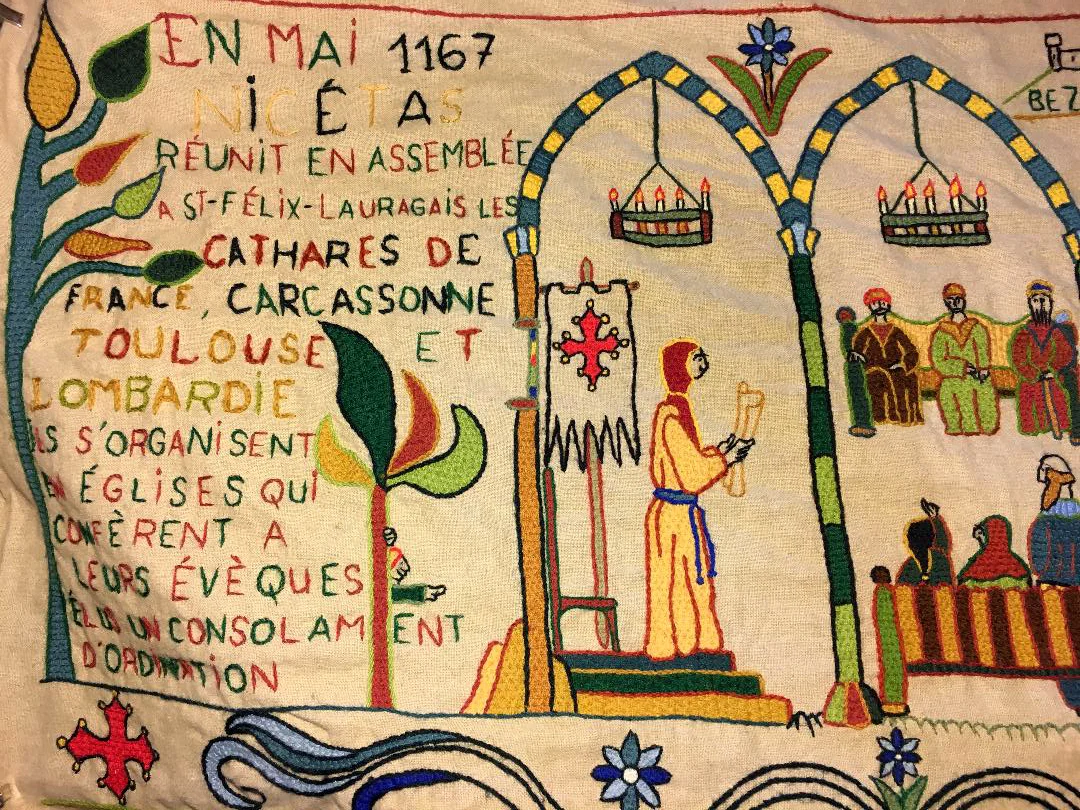 EN MAi 1167
NiCÉTAS
RÉUNiT EN ASSEMBLÉE
A ST-FÉLiX-LAURAGAiS LES
CATHARES DE
FRANCE, CARCASSONNE
TOULOUSE ET
LOMBARDiE
iLS S'ORGANiSENT
EN ÉGLiSES QUi
CONFÈRENT A
LEURS ÉVÈQUES
ÉLUS UN CONSOLAMENT
D'ORDiNATiON
BEZ